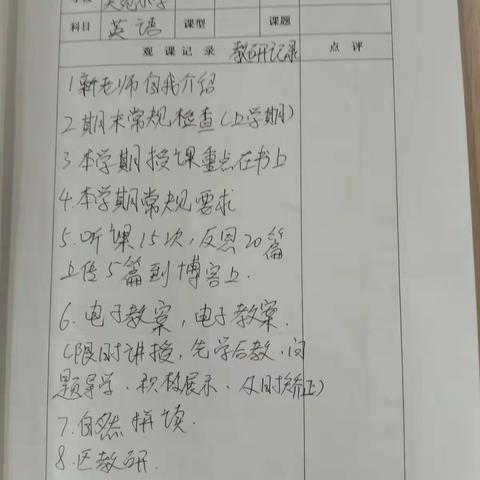 天苑小学
科目 英语 课型 课题
观课记录 教研记录 点评
1新老师自我介绍
2.期末常规检查(上学期)
3.本学期授课重点在书上
4.本学期常规要求
5.听课15次,反思20篇
上传5篇到博客上.
6.电子教案,电子教案.
(限时讲授,先学后教.问
题导学.积极展示.及时矫正)
7.自然拼读.
8.区教研.